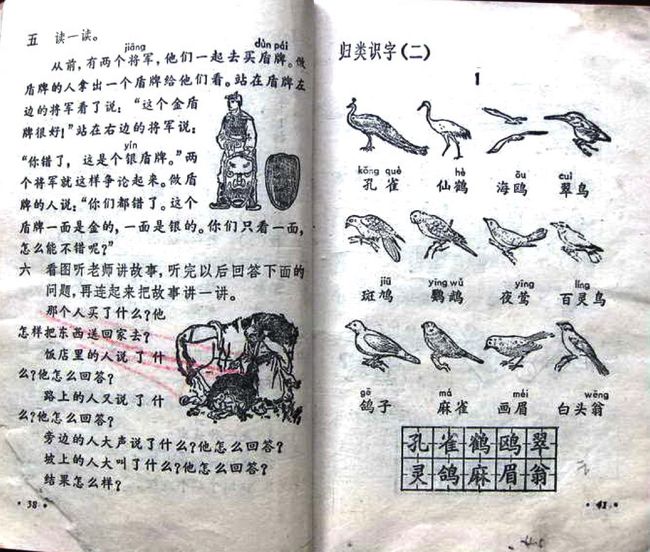 五 读一读。
jiāng dùn pái
从前,有两个将军,他们一起去买盾牌。做
盾牌的人拿出一个盾牌给他们看。站在盾牌左
边的将军看了说:“这个金盾
牌很好!”站在右边的将军说:
yín
“你错了,这是个银盾牌。”两
个将军就这样争论起来。做盾
牌的人说:“你们都错了。这个
盾牌一面是金的,一面是银的。你们只看一面,
怎么能不错呢?”
六 看图听老师讲故事,听完以后回答下面的
问题,再连起来把故事讲一讲。
那个人买了什么?他
怎样把东西送回家去?
饭店里的人说了什
么?他怎么回答?
路上的人又说了什
么?他怎么回答?
旁边的人大声说了什么?他怎么回答?
坡上的人大叫了什么?他怎么回答?
结果怎么样?
· 38 ·
归类识字(二)
1
kǒng què hè ōu cuì
孔雀 仙鹤 海鸥 翠鸟
jiū yīng wǔ yīng líng
斑鸠 鹦鹉 夜莺 百灵鸟
gē má méi wēng
鸽子 麻雀 画眉 白头翁
孔 雀 鹤 鸥 翠
灵 鸽 麻 眉 翁
· 41 ·